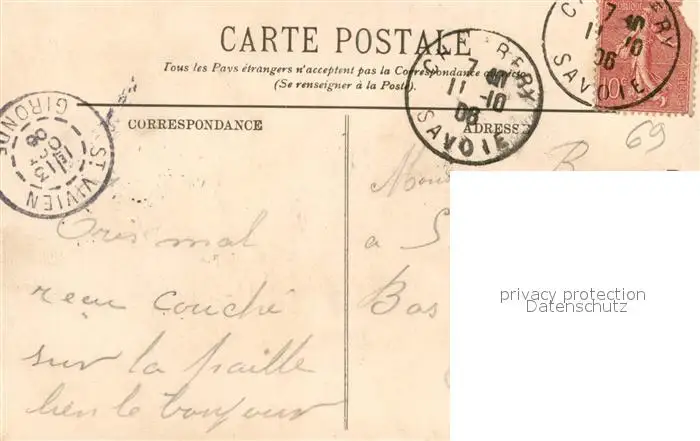 CARTE POSTALE
Tous les Pays étrangers n'acceptent pas la Correspondance au recto
(Se renseigner à la Poste).
CORRESPONDANCE
ADRESSE
7
11 -10
06
SAVOIE
7
11 -10
06
SAVOIE
10c
69
ST VIVIEN
GIRONDE
13
OCT
06
B
a S
Bas
Très mal
reçu couché
sur la paille
bien le bonjour
privacy protection
Datenschutz